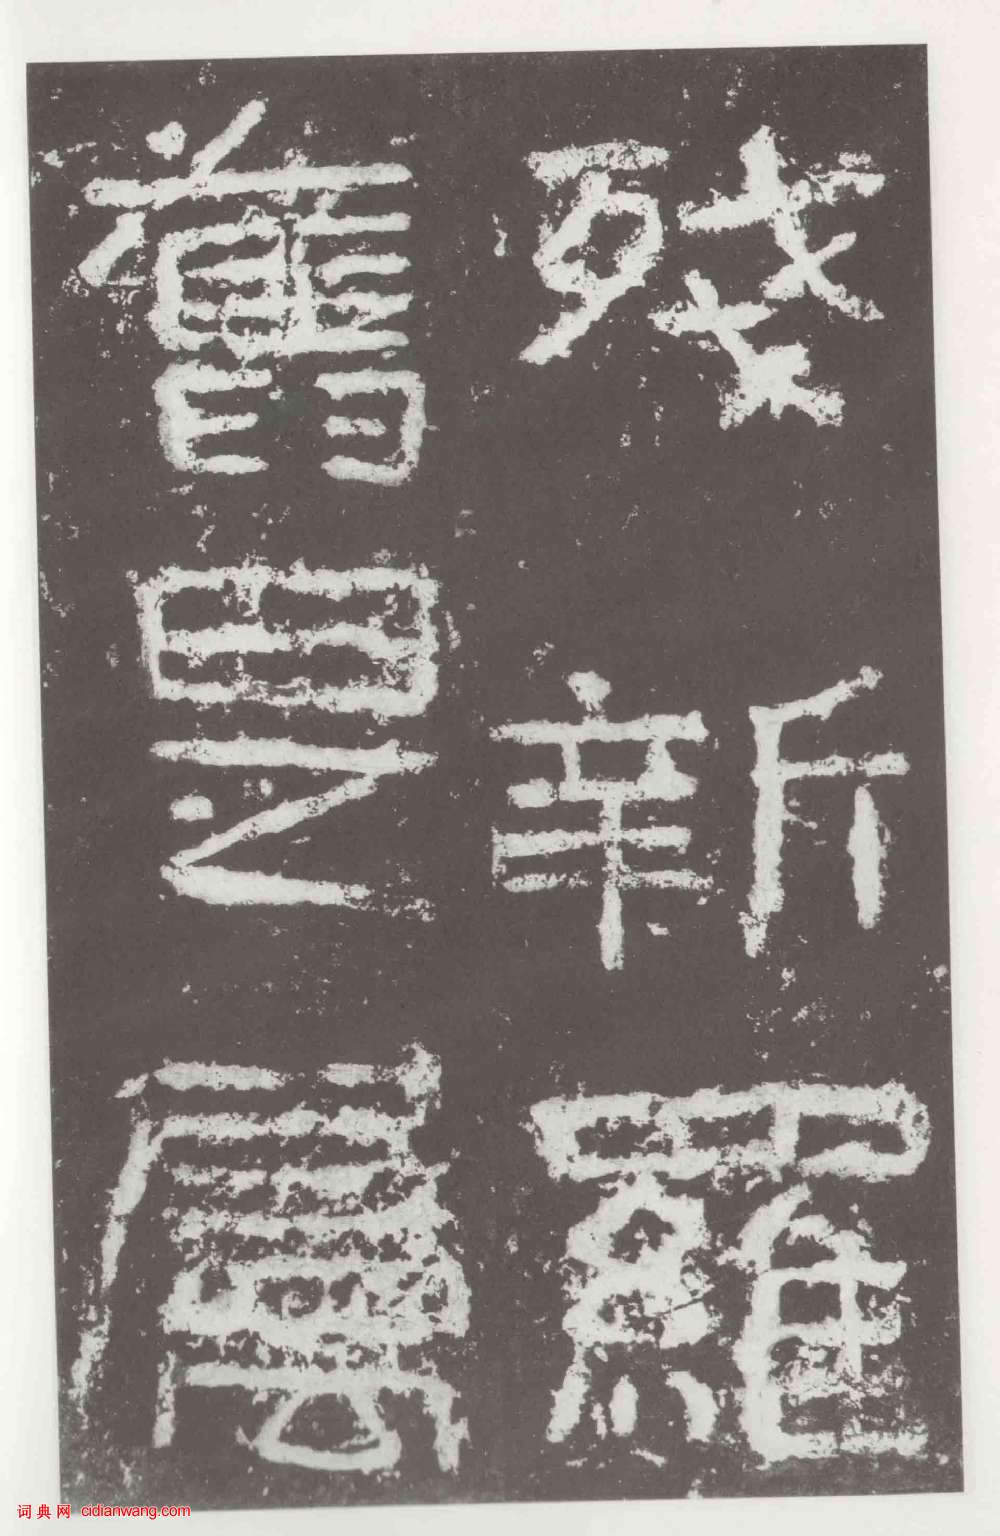 殘新羅
舊是屬
词典网 cidianwang.com